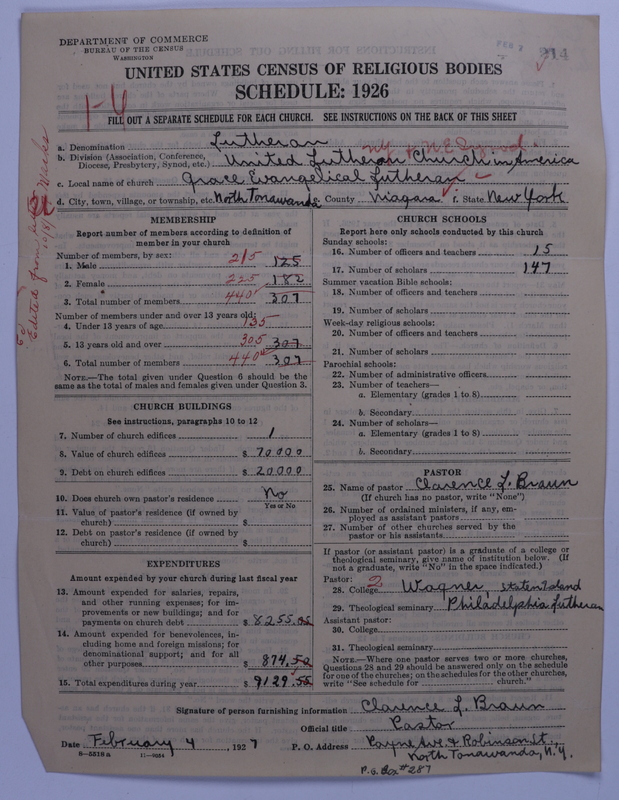 DEPARTMENT OF COMMERCE
BUREAU OF THE CENSUS
WASHINGTON
FEB 7
214
UNITED STATES CENSUS OF RELIGIOUS BODIES
SCHEDULE: 1926
1-6
FILL OUT A SEPARATE SCHEDULE FOR EACH CHURCH. SEE INSTRUCTIONS ON THE BACK OF THIS SHEET
a. Denomination Lutheran
b. Division (Association, Conference, Diocese, Presbytery, Synod, etc.) United Lutheran Church in America
c. Local name of church Grace Evangelical Lutheran
d. City, town, village, or township, etc. North Tonawanda e. County Niagara f. State New York
Edited from
MEMBERSHIP
Report number of members according to definition of member in your church
Number of members, by sex:
1. Male 215 125
2. Female 225 182
3. Total number of members 440 307
Number of members under and over 13 years old:
4. Under 13 years of age 135
5. 13 years old and over 305 307
6. Total number of members 440 307
NOTE.—The total given under Question 6 should be the same as the total of males and females given under Question 3.
CHURCH BUILDINGS
See instructions, paragraphs 10 to 12
7. Number of church edifices 1
8. Value of church edifices $ 70000
9. Debt on church edifices $ 20000
10. Does church own pastor's residence No
Yes or No
11. Value of pastor's residence (if owned by church) $
12. Debt on pastor's residence (if owned by church) $
EXPENDITURES
Amount expended by your church during last fiscal year
13. Amount expended for salaries, repairs, and other running expenses; for improvements or new buildings; and for payments on church debt $ 8255.05
14. Amount expended for benevolences, including home and foreign missions; for denominational support; and for all other purposes $ 874.50
15. Total expenditures during year $ 9129.55
CHURCH SCHOOLS
Report here only schools conducted by this church
Sunday schools:
16. Number of officers and teachers 15
17. Number of scholars 147
Summer vacation Bible schools:
18. Number of officers and teachers
19. Number of scholars
Week-day religious schools:
20. Number of officers and teachers
21. Number of scholars
Parochial schools:
22. Number of administrative officers
23. Number of teachers—
a. Elementary (grades 1 to 8)
b. Secondary
24. Number of scholars—
a. Elementary (grades 1 to 8)
b. Secondary
PASTOR
25. Name of pastor Clarence L. Braun
(If church has no pastor, write "None")
26. Number of ordained ministers, if any, employed as assistant pastors
27. Number of other churches served by the pastor or his assistants
If pastor (or assistant pastor) is a graduate of a college or theological seminary, give name of institution below. (If not a graduate, write "No" in the space indicated.)
Pastor: 2
28. College Wagner, Staten Island
29. Theological seminary Philadelphia Lutheran
Assistant pastor:
30. College
31. Theological seminary
NOTE.—Where one pastor serves two or more churches, Questions 28 and 29 should be answered only on the schedule for one of the churches; on the schedules for the other churches, write "See schedule for church."
Signature of person furnishing information Clarence L. Braun
Official title Pastor
Date February 4, 1927 P. O. Address Payne Ave. & Robinson St.,
North Tonawanda, N.Y.
8—5518a 11—9054
P.O. Box #287